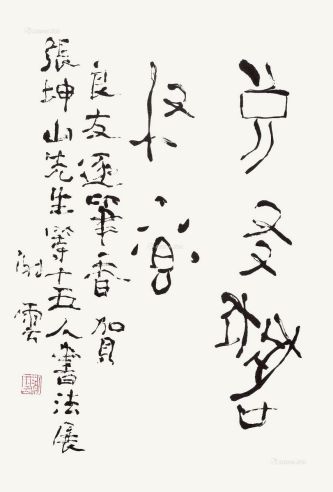 良友逐筆香
良友逐筆香 賀
張坤山先生等十五人書法展
謝雲